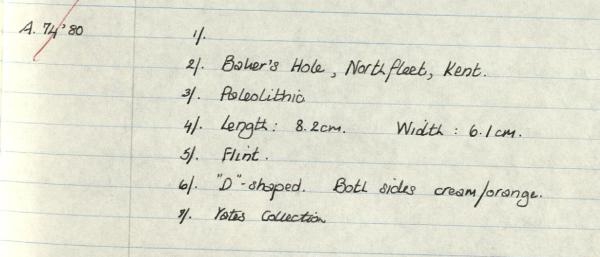 A. 74'80 1/.
2/. Baker's Hole, Northfleet, Kent.
3/. Paleolithic
4/. Length: 8.2cm. Width: 6.1cm.
5/. Flint.
6/. "D"-shaped. Both sides cream/orange.
9/. Yates Collection